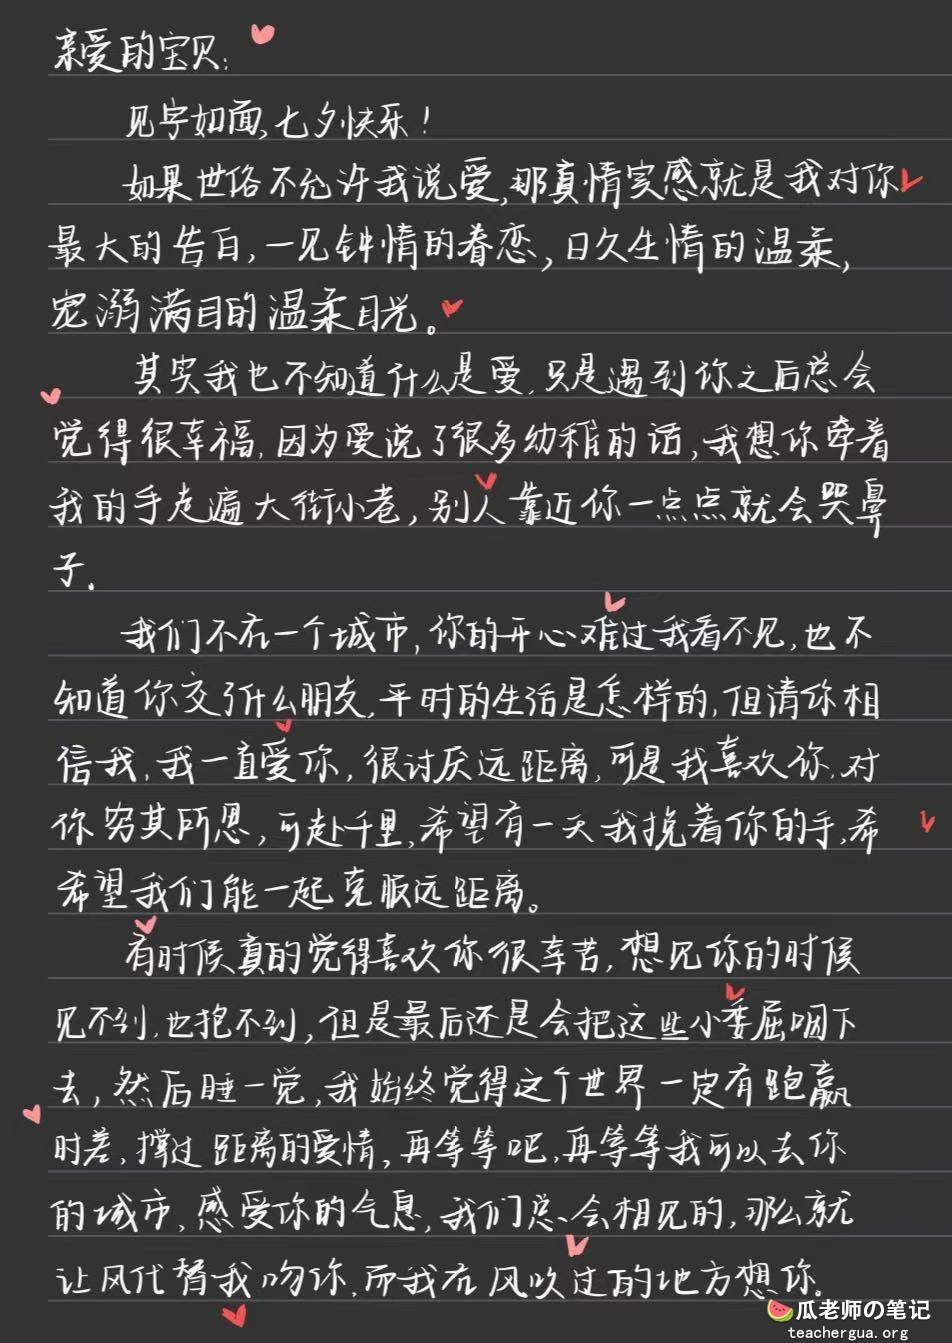 亲爱的宝贝:
见字如面,七夕快乐!
如果世俗不允许我说爱,那真情实感就是我对你
最大的告白,一见钟情的眷恋,日久生情的温柔,
宠溺满目的温柔目光。
其实我也不知道什么是爱,只是遇到你之后总会
觉得很幸福,因为爱说了很多幼稚的话,我想你牵着
我的手走遍大街小巷,别人靠近你一点点就会哭鼻
子.
我们不在一个城市,你的开心难过我看不见,也不
知道你交了什么朋友,平时的生活是怎样的,但请你相
信我,我一直爱你,很讨厌远距离,可是我喜欢你,对
你穷其所思,可赴千里,希望有一天我挽着你的手,希
希望我们能一起克服远距离。
有时候真的觉得喜欢你很辛苦,想见你的时候
见不到,也抱不到,但是最后还是会把这些小委屈咽下
去,然后睡一觉,我始终觉得这个世界一定有跑赢
时差,撑过距离的爱情,再等等吧,再等等我可以去你
的城市,感受你的气息,我们总会相见的,那么就
让风代替我吻你,而我在风吹过的地方想你。
瓜老师の笔记
teachergua.org